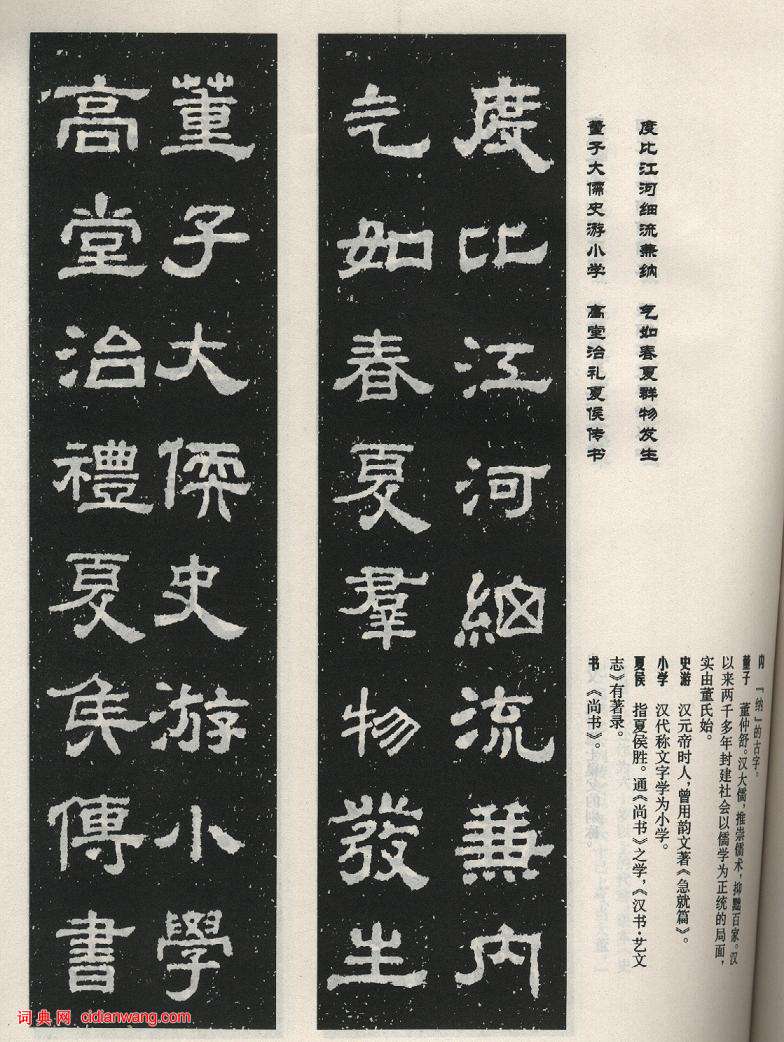 度比江河细流兼纳 气如春夏群物发生
董子大儒史游小学 高堂治礼夏侯传书
内 「纳」的古字。
董子 董仲舒。汉大儒，推崇儒术，抑黜百家。汉
以来两千多年封建社会以儒学为正统的局面，
实由董氏始。
史游 汉元帝时人，曾用韵文著《急就篇》。
小学 汉代称文字学为小学。
夏侯 指夏侯胜。通《尚书》之学，《汉书·艺文
志》有著录。
书 《尚书》。
度比江河細流兼内
气如春夏羣物發生
董子大儒史游小學
高堂治禮夏侯傳書
词典网 cidianwang.com